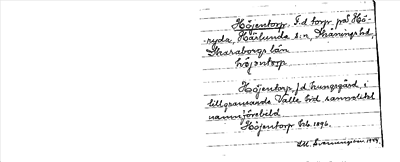 Höjentorp, F.d torp på Hö-
ryda, Härlunda s:n, Skånings hd,
Skaraborgs län
höjentorp
Höjentorp f.d. kungsgård, i
tillgränsande Valle hd sannolikt
namnförebild
Höjentorp beb. 1896.
1949.